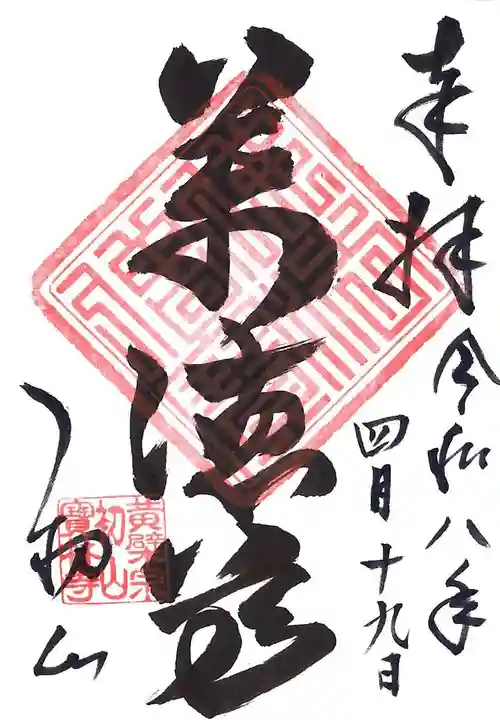 奉拝 令和八年
四月十九日
萬徳尊
初山
黄檗宗
初山
寶林寺